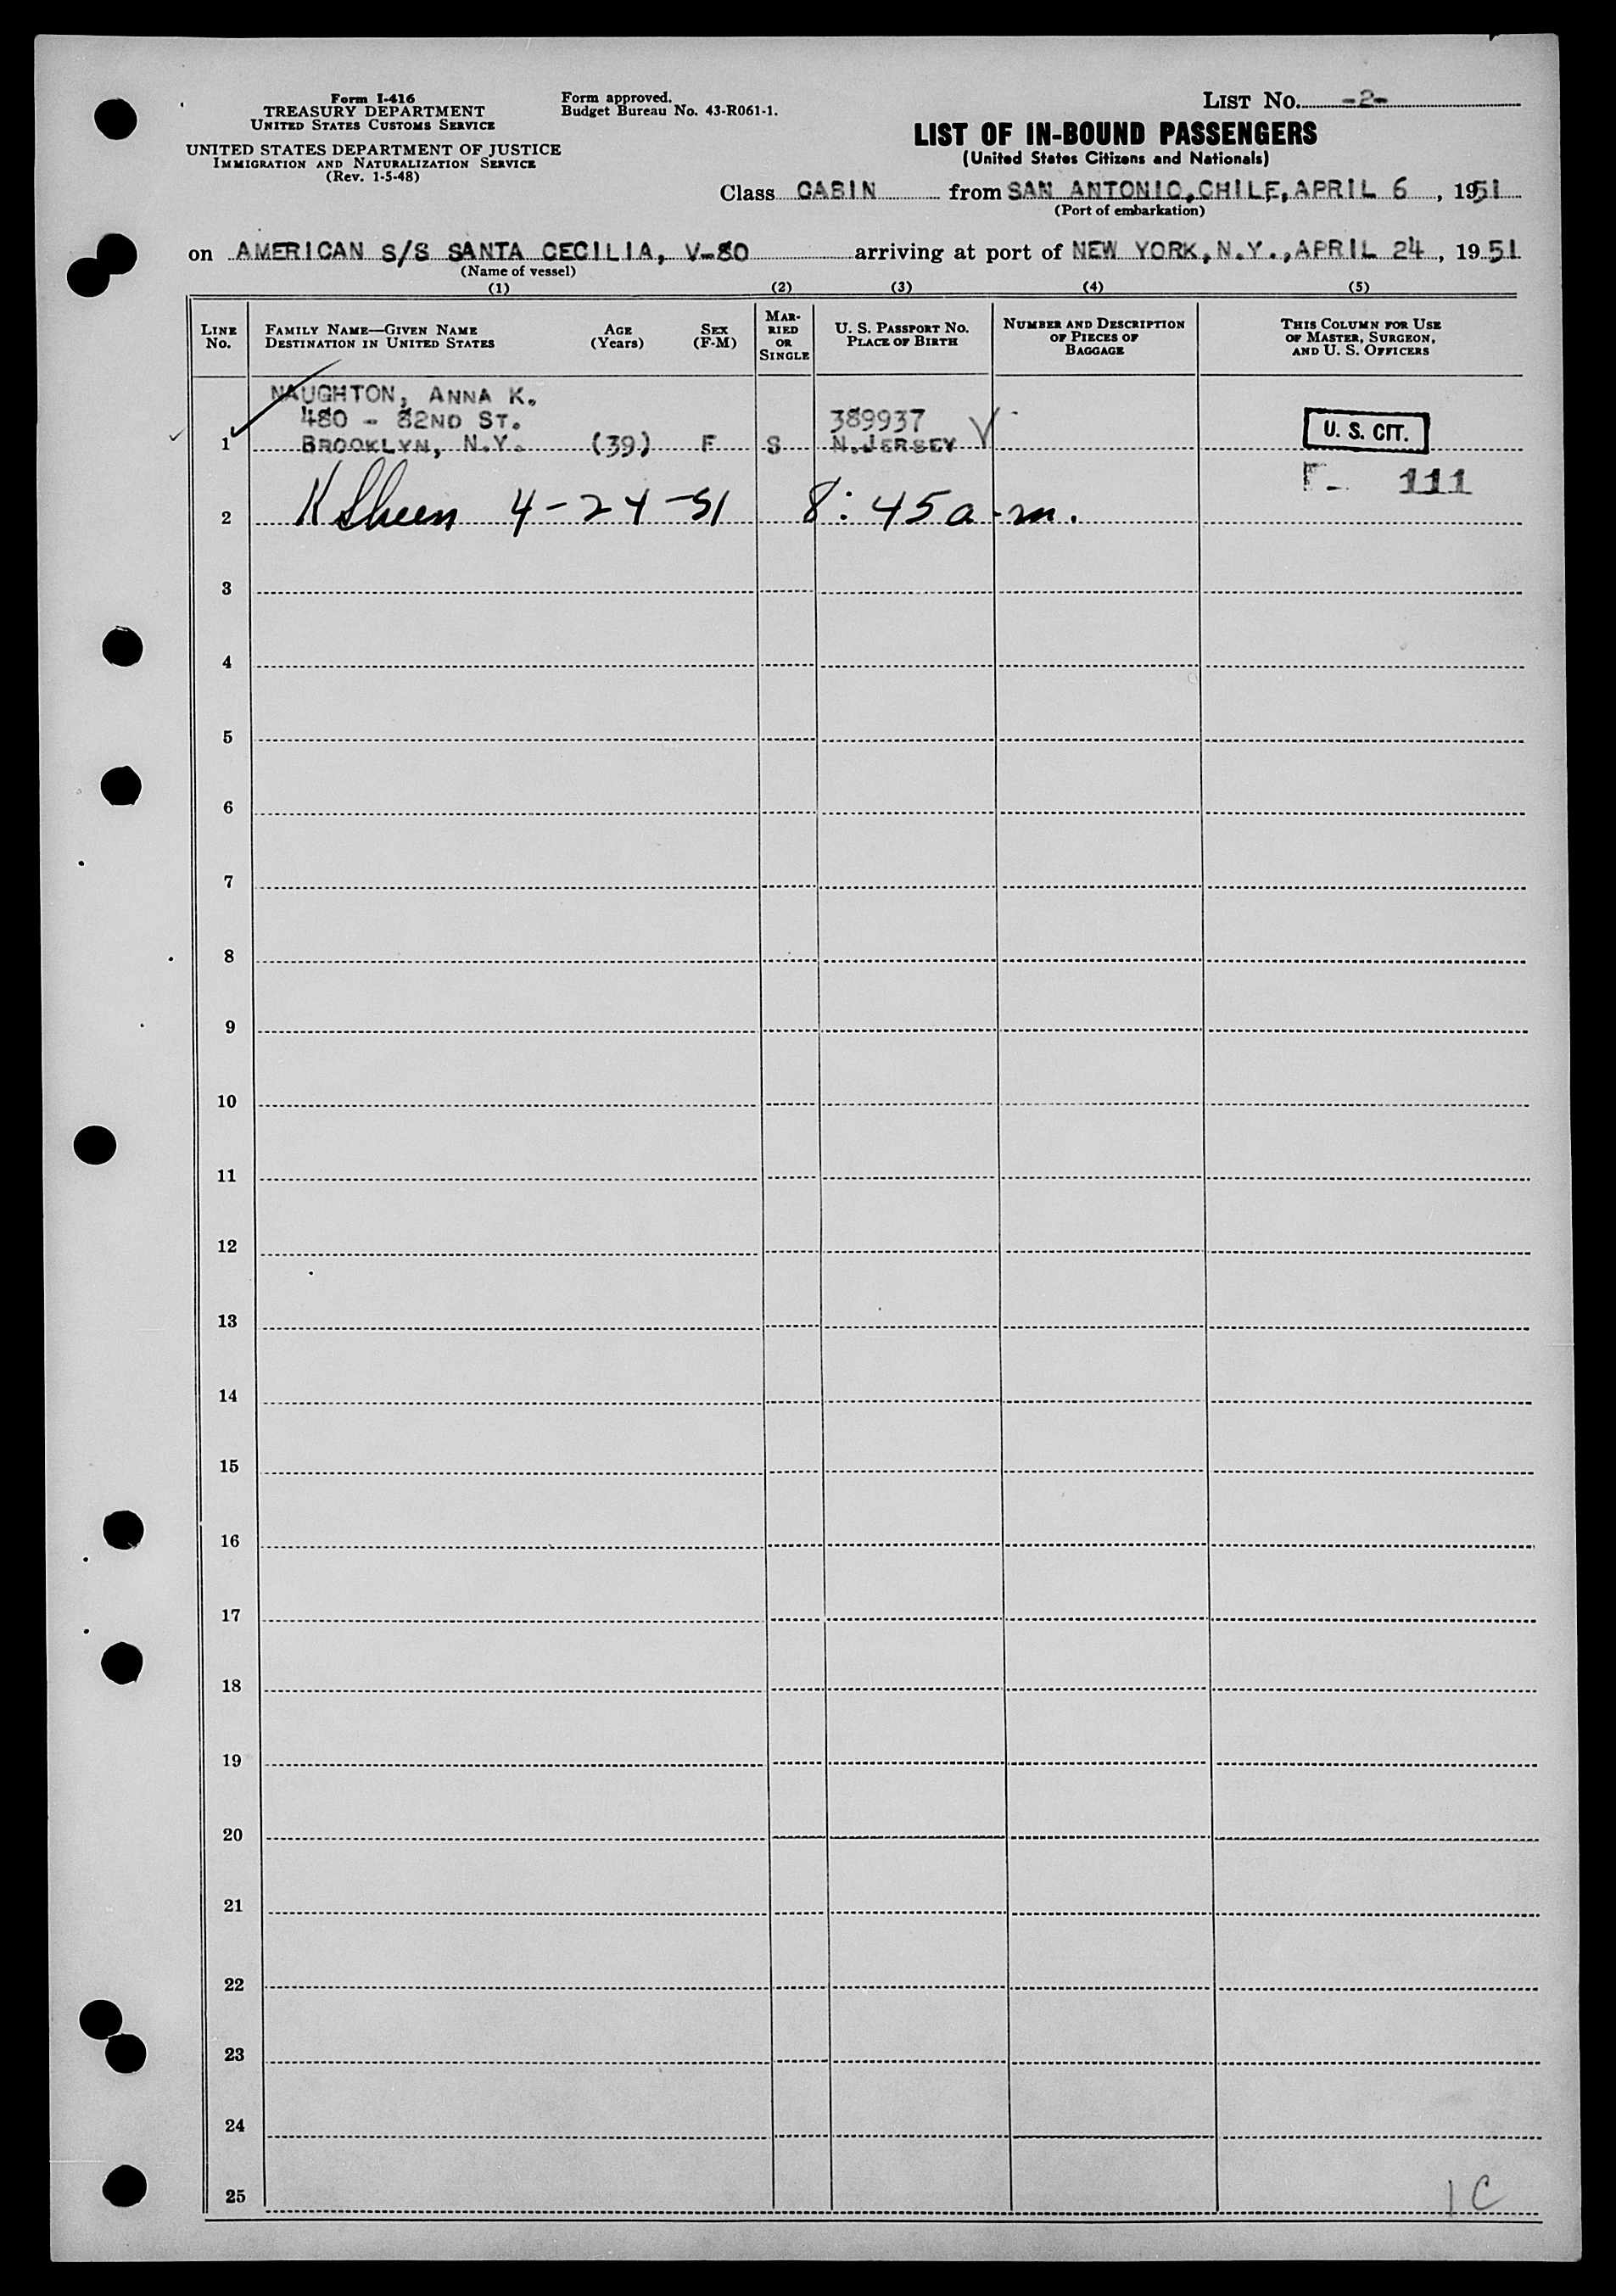 Form I-416
TREASURY DEPARTMENT
UNITED STATES CUSTOMS SERVICE
UNITED STATES DEPARTMENT OF JUSTICE
IMMIGRATION AND NATURALIZATION SERVICE
(Rev. 1-5-48)
Form approved.
Budget Bureau No. 43-R061-1.
LIST No. -2-
LIST OF IN-BOUND PASSENGERS
(United States Citizens and Nationals)
Class CABIN from SAN ANTONIO, CHILE, APRIL 6, 1951
(Port of embarkation)
on AMERICAN S/S SANTA CECILIA, V-80 arriving at port of NEW YORK, N.Y., APRIL 24, 1951
(Name of vessel)
(1) (2) (3) (4) (5)
LINE No.
FAMILY NAME—GIVEN NAME
DESTINATION IN UNITED STATES
AGE (Years)
SEX (F-M)
MARRIED OR SINGLE
U. S. PASSPORT NO.
PLACE OF BIRTH
NUMBER AND DESCRIPTION OF PIECES OF BAGGAGE
THIS COLUMN FOR USE OF MASTER, SURGEON, AND U. S. OFFICERS
NAUGHTON, ANNA K.
480 - 82ND ST. 389937
1 BROOKLYN, N.Y. (39) F S N.JERSEY U. S. CIT.
111
2 4-24-51 8:45 a.m.
3
4
5
6
7
8
9
10
11
12
13
14
15
16
17
18
19
20
21
22
23
24
25
1 C